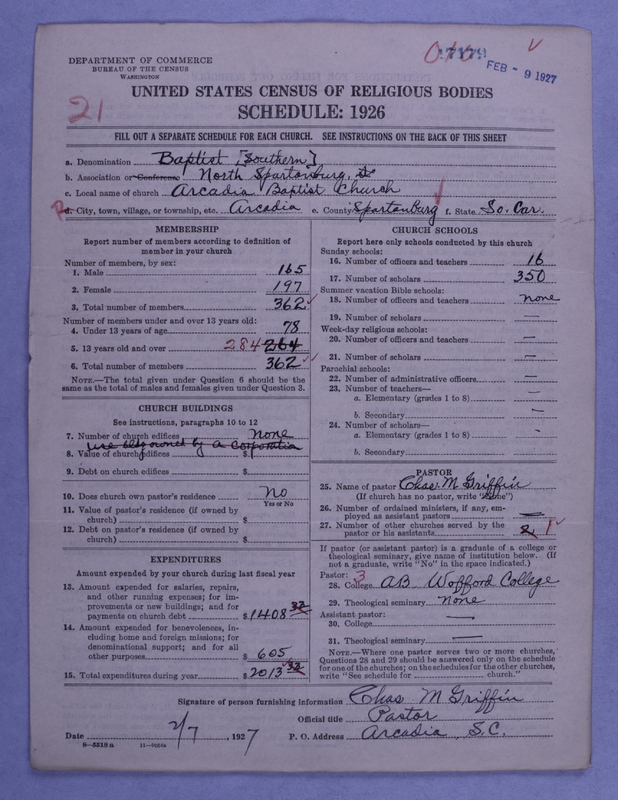 DEPARTMENT OF COMMERCE
BUREAU OF THE CENSUS
WASHINGTON
FEB - 9 1927
21
UNITED STATES CENSUS OF RELIGIOUS BODIES
SCHEDULE: 1926
FILL OUT A SEPARATE SCHEDULE FOR EACH CHURCH. SEE INSTRUCTIONS ON THE BACK OF THIS SHEET
a. Denomination Baptist [Southern]
b. Association or Conference North Spartanburg, Sc
c. Local name of church Arcadia Baptist Church
d. City, town, village, or township, etc. Arcadia e. County Spartanburg f. State So. Car.
MEMBERSHIP
Report number of members according to definition of member in your church
Number of members, by sex:
1. Male 165
2. Female 197
3. Total number of members 362
Number of members under and over 13 years old:
4. Under 13 years of age 78
5. 13 years old and over 284 264
6. Total number of members 362
NOTE.—The total given under Question 6 should be the same as the total of males and females given under Question 3.
CHURCH BUILDINGS
See instructions, paragraphs 10 to 12
7. Number of church edifices none
use bldg owned by a corporation
8. Value of church edifices $
9. Debt on church edifices $
10. Does church own pastor's residence No
Yes or No
11. Value of pastor's residence (if owned by church) $
12. Debt on pastor's residence (if owned by church) $
EXPENDITURES
Amount expended by your church during last fiscal year
13. Amount expended for salaries, repairs, and other running expenses; for improvements or new buildings; and for payments on church debt $ 1408 32
14. Amount expended for benevolences, including home and foreign missions; for denominational support; and for all other purposes $ 605
15. Total expenditures during year $ 2013 32
CHURCH SCHOOLS
Report here only schools conducted by this church
Sunday schools:
16. Number of officers and teachers 16
17. Number of scholars 350
Summer vacation Bible schools:
18. Number of officers and teachers none
19. Number of scholars —
Week-day religious schools:
20. Number of officers and teachers —
21. Number of scholars —
Parochial schools:
22. Number of administrative officers —
23. Number of teachers—
a. Elementary (grades 1 to 8) —
b. Secondary -
24. Number of scholars—
a. Elementary (grades 1 to 8) -
b. Secondary -
PASTOR
25. Name of pastor Chas. M Griffin
(If church has no pastor, write "None")
26. Number of ordained ministers, if any, employed as assistant pastors —
27. Number of other churches served by the pastor or his assistants 2 1
If pastor (or assistant pastor) is a graduate of a college or theological seminary, give name of institution below. (If not a graduate, write "No" in the space indicated.)
Pastor: 3
28. College AB Wofford College
29. Theological seminary None
Assistant pastor:
30. College —
31. Theological seminary —
NOTE.—Where one pastor serves two or more churches, Questions 28 and 29 should be answered only on the schedule for one of the churches; on the schedules for the other churches, write "See schedule for church."
Signature of person furnishing information Chas M Griffin
Official title Pastor
Date 2/7, 1927 P. O. Address Arcadia, S.C.